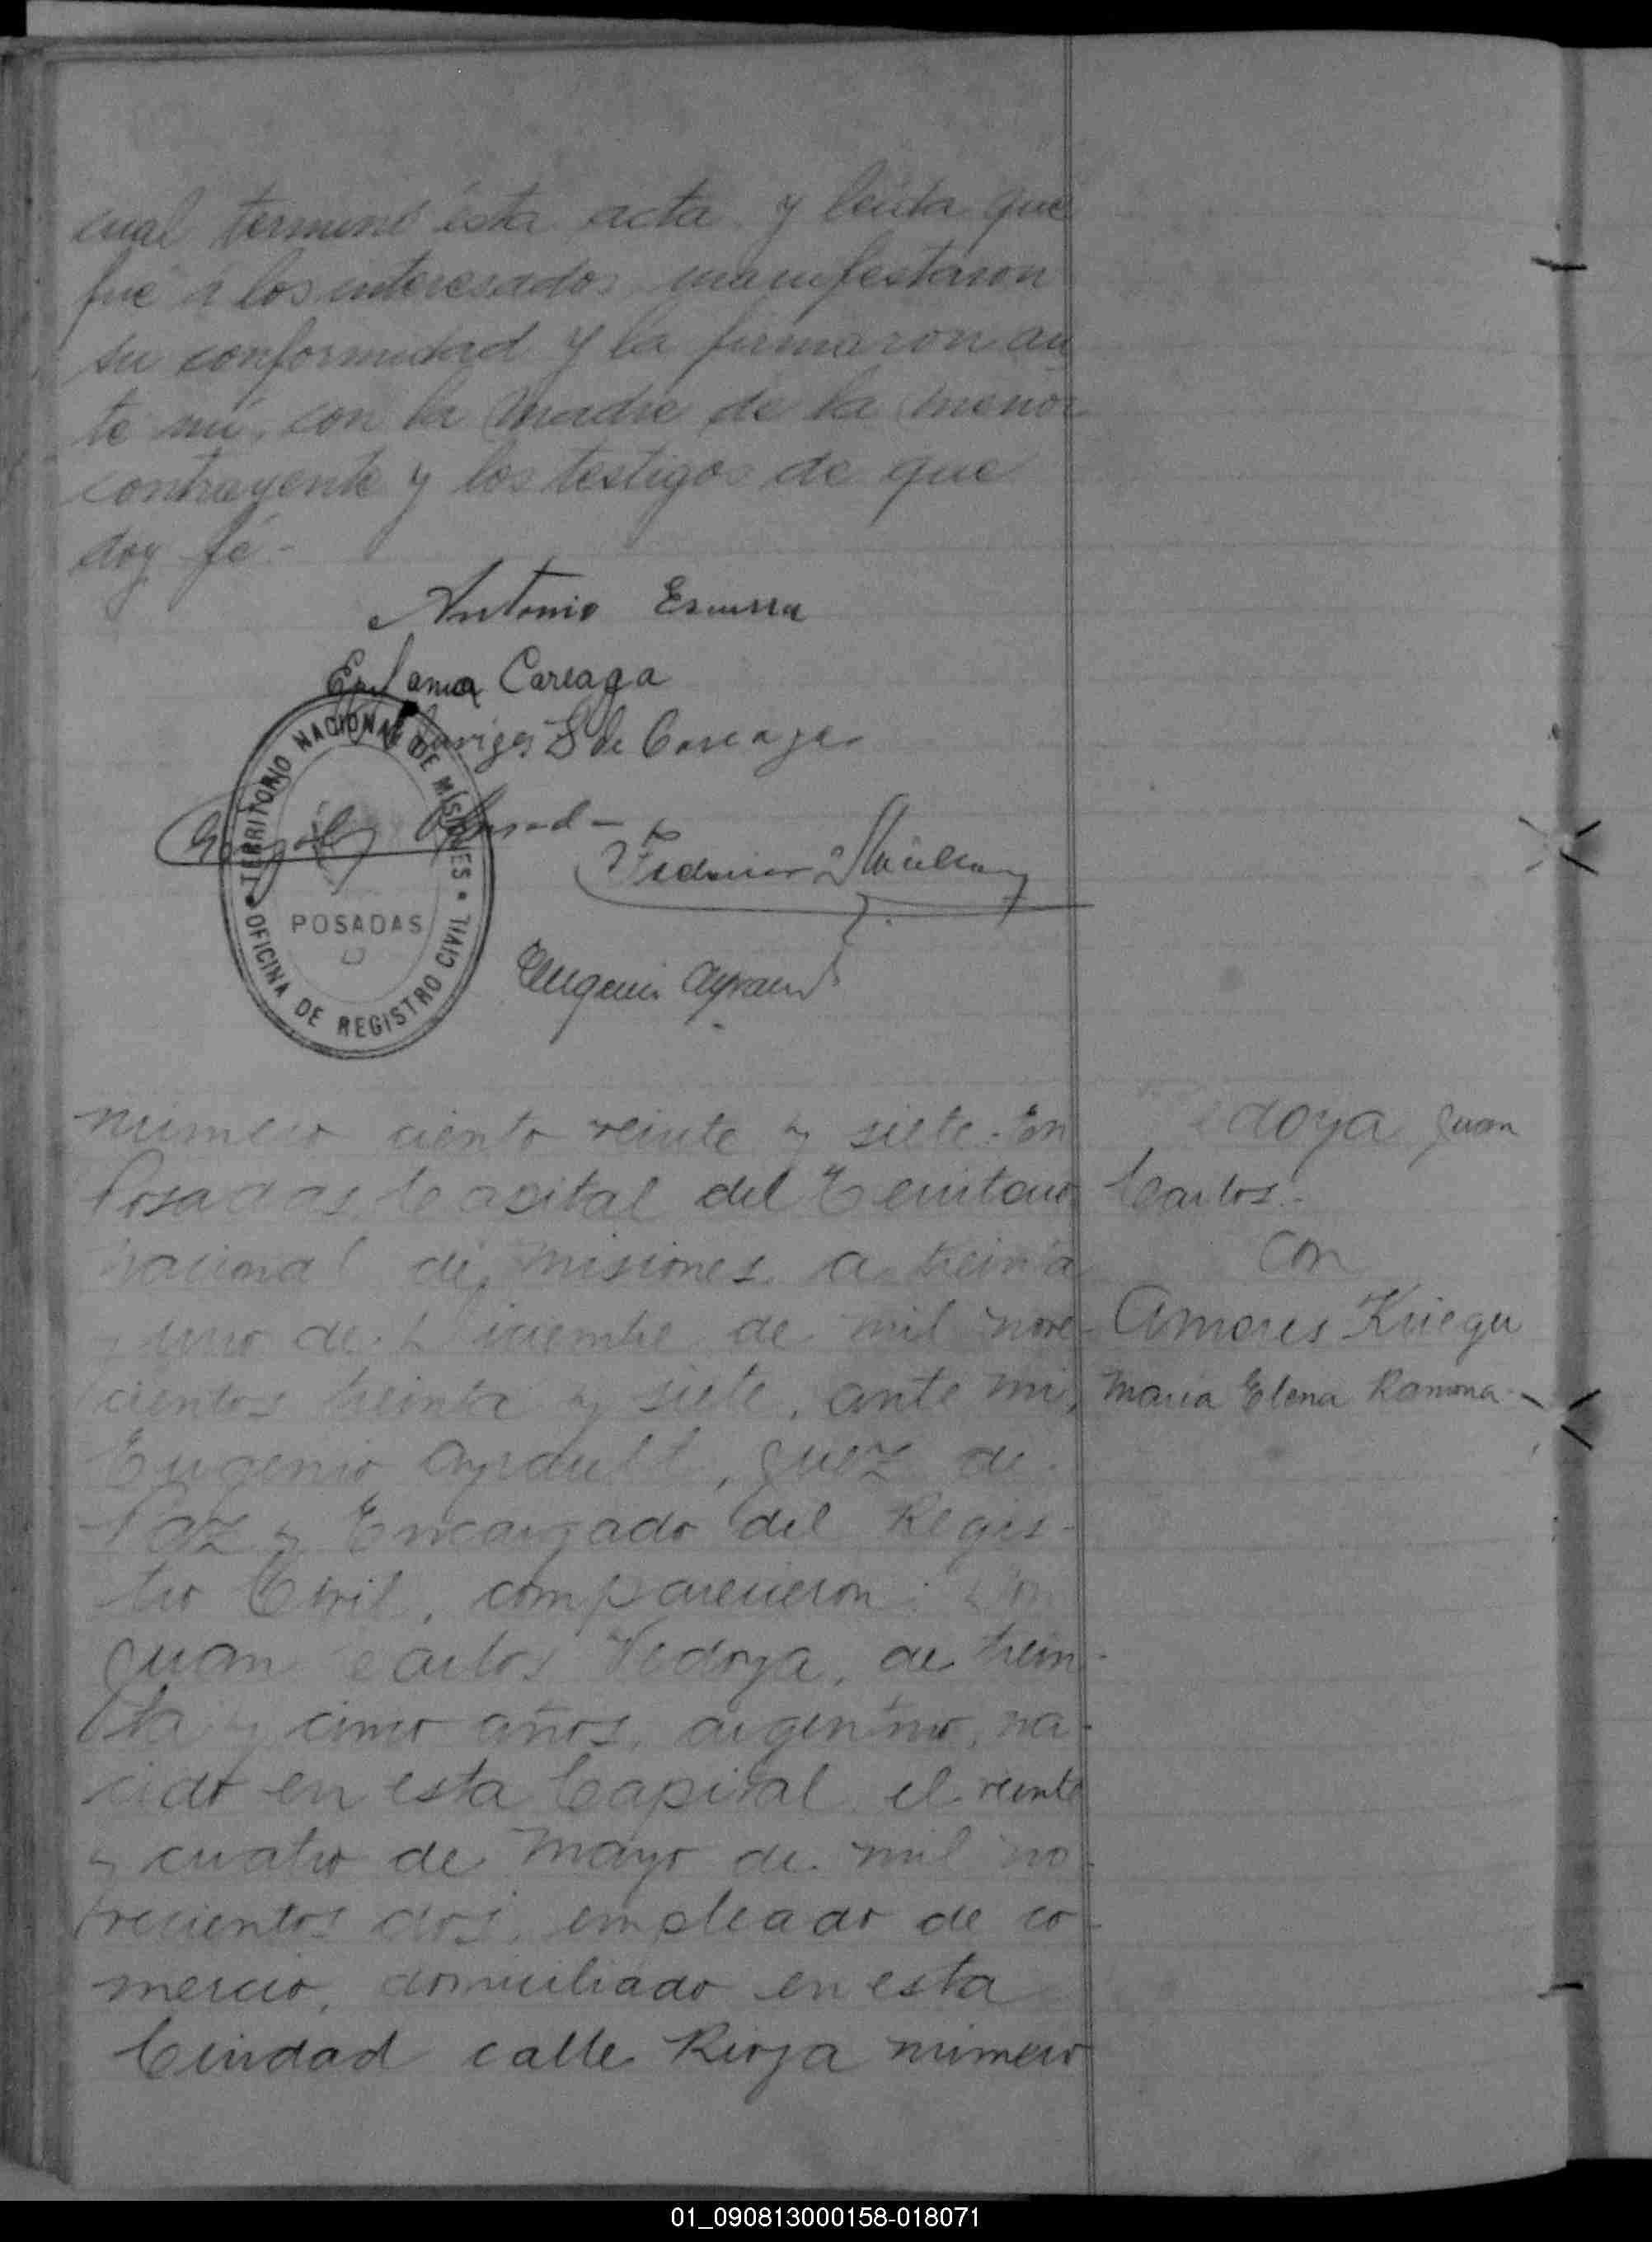 cual terminé ésta acta y leída que
fué á los interesados manifestaron
su conformidad y la firmaron an
te mí, con la Madre de la menor
contrayente y los testigos de que
doy fé-
Antonio
Careaga
de Careaga
TERRITORIO NACIONAL DE MISIONES
POSADAS
OFICINA DE REGISTRO CIVIL
Federico
Eugenio
número ciento veinte y siete. En
Posadas Capital del Territorio
nacional de Misiones a treinta
y uno de Diciembre de mil nove-
cientos treinta y siete, ante mi,
Eugenio Ayrault, Juez de
Paz y Encargado del Regis-
tro Civil, comparecieron: Don
Juan Carlos Vedoya, de trein-
ta y cinco años, argentino, na-
cido en esta Capital el veinte
y cuatro de Mayo de mil no-
vecientos dos, empleado de co-
mercio, domiciliado en esta
Ciudad calle Rioja número
edoya Juan
Carlos.-
con
Amores Krieger
Maria Elena Ramona-
01_090813000158-018071